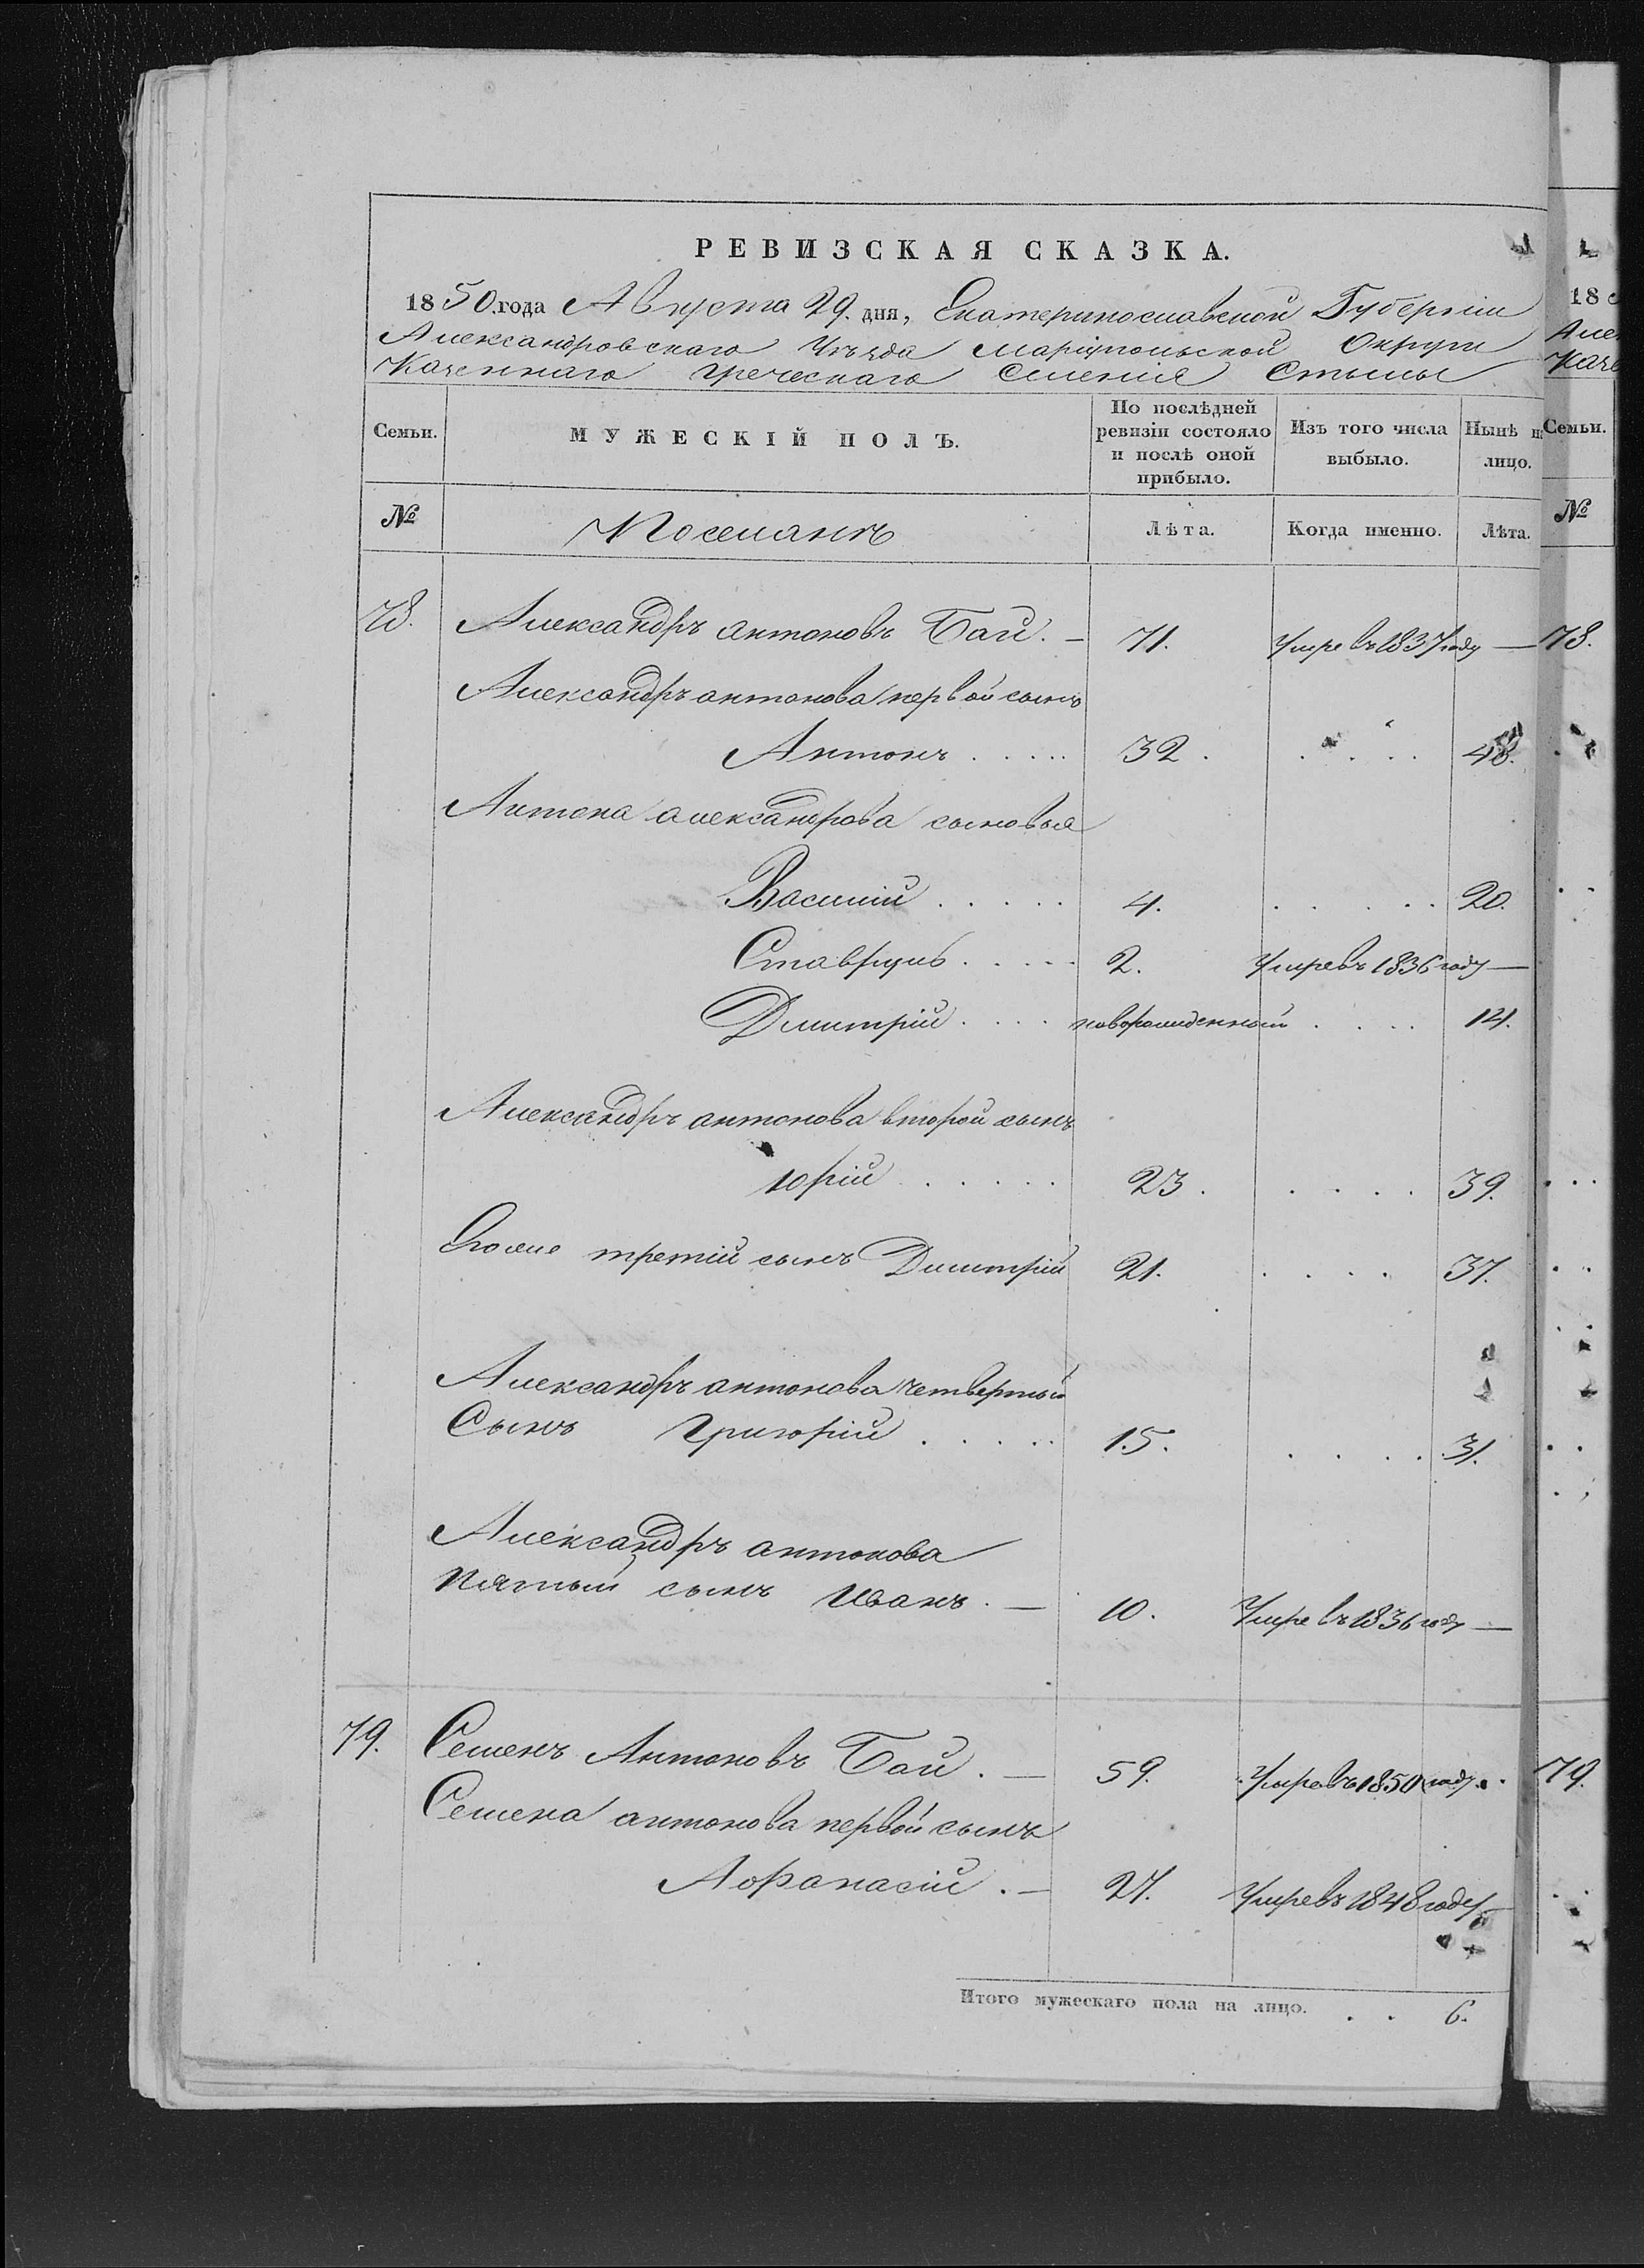 РЕВИЗСКАЯ СКАЗКА.
1850. года Августа 29. дня, Екатеринославской Губерніи
Александровскаго Уѣзда Маріупольской Округи
Казеннаго греческаго Селенія Стылы
Семьи. МУЖЕСКІЙ ПОЛЪ. По послѣдней ревизіи состояло и послѣ оной прибыло. Изъ того числа выбыло. Нынѣ н лицо.
№ Поселянъ Лѣта. Когда именно. Лѣта.
78. Александръ антоновъ Бай. — 71. Умре въ 1837 году —
Александръ антонова первой сынъ
Антонъ . . . . . 32. . . . . 48.
Антона александрова сыновья
Василій . . . . . 4. . . . . . 20.
Ставринъ . . . . . 2. Умре въ 1836 году —
Дмитрій . . . . новорожденный . . . . 14.
Александръ антонова второй сынъ
юрій . . . . . . 23. . . . . 39.
Егоже третій сынъ Дмитрій 21. . . . . 37.
Александръ антонова четвертый
Сынъ Григорій . . . . . 15. . . . . . 31.
Александръ антонова
пятый сынъ Иванъ. — 10. Умре въ 1836 году —
79. Семенъ Антоновъ Бай. — 59. Умре въ 1850 году . .
Семена антонова первой сынъ
Афанасій . — 27. Умре въ 1848 году —
Итого мужескаго пола на лицо. . . 6.
18
Але
Казе
Семьи.
№
78.
79.